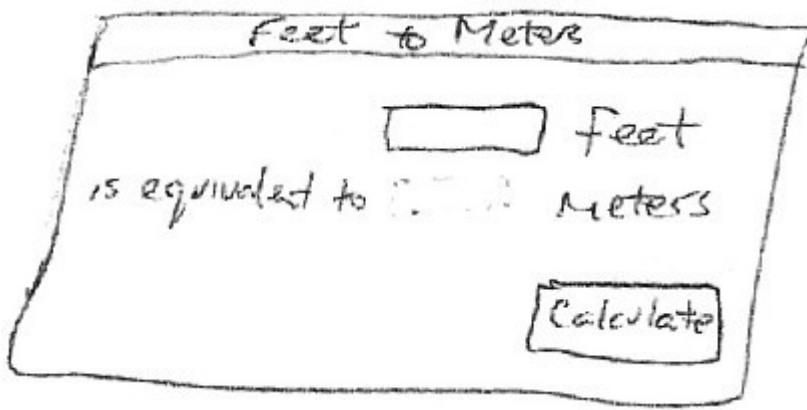 Feet to Meters
feet
is equivalent to meters
Calculate